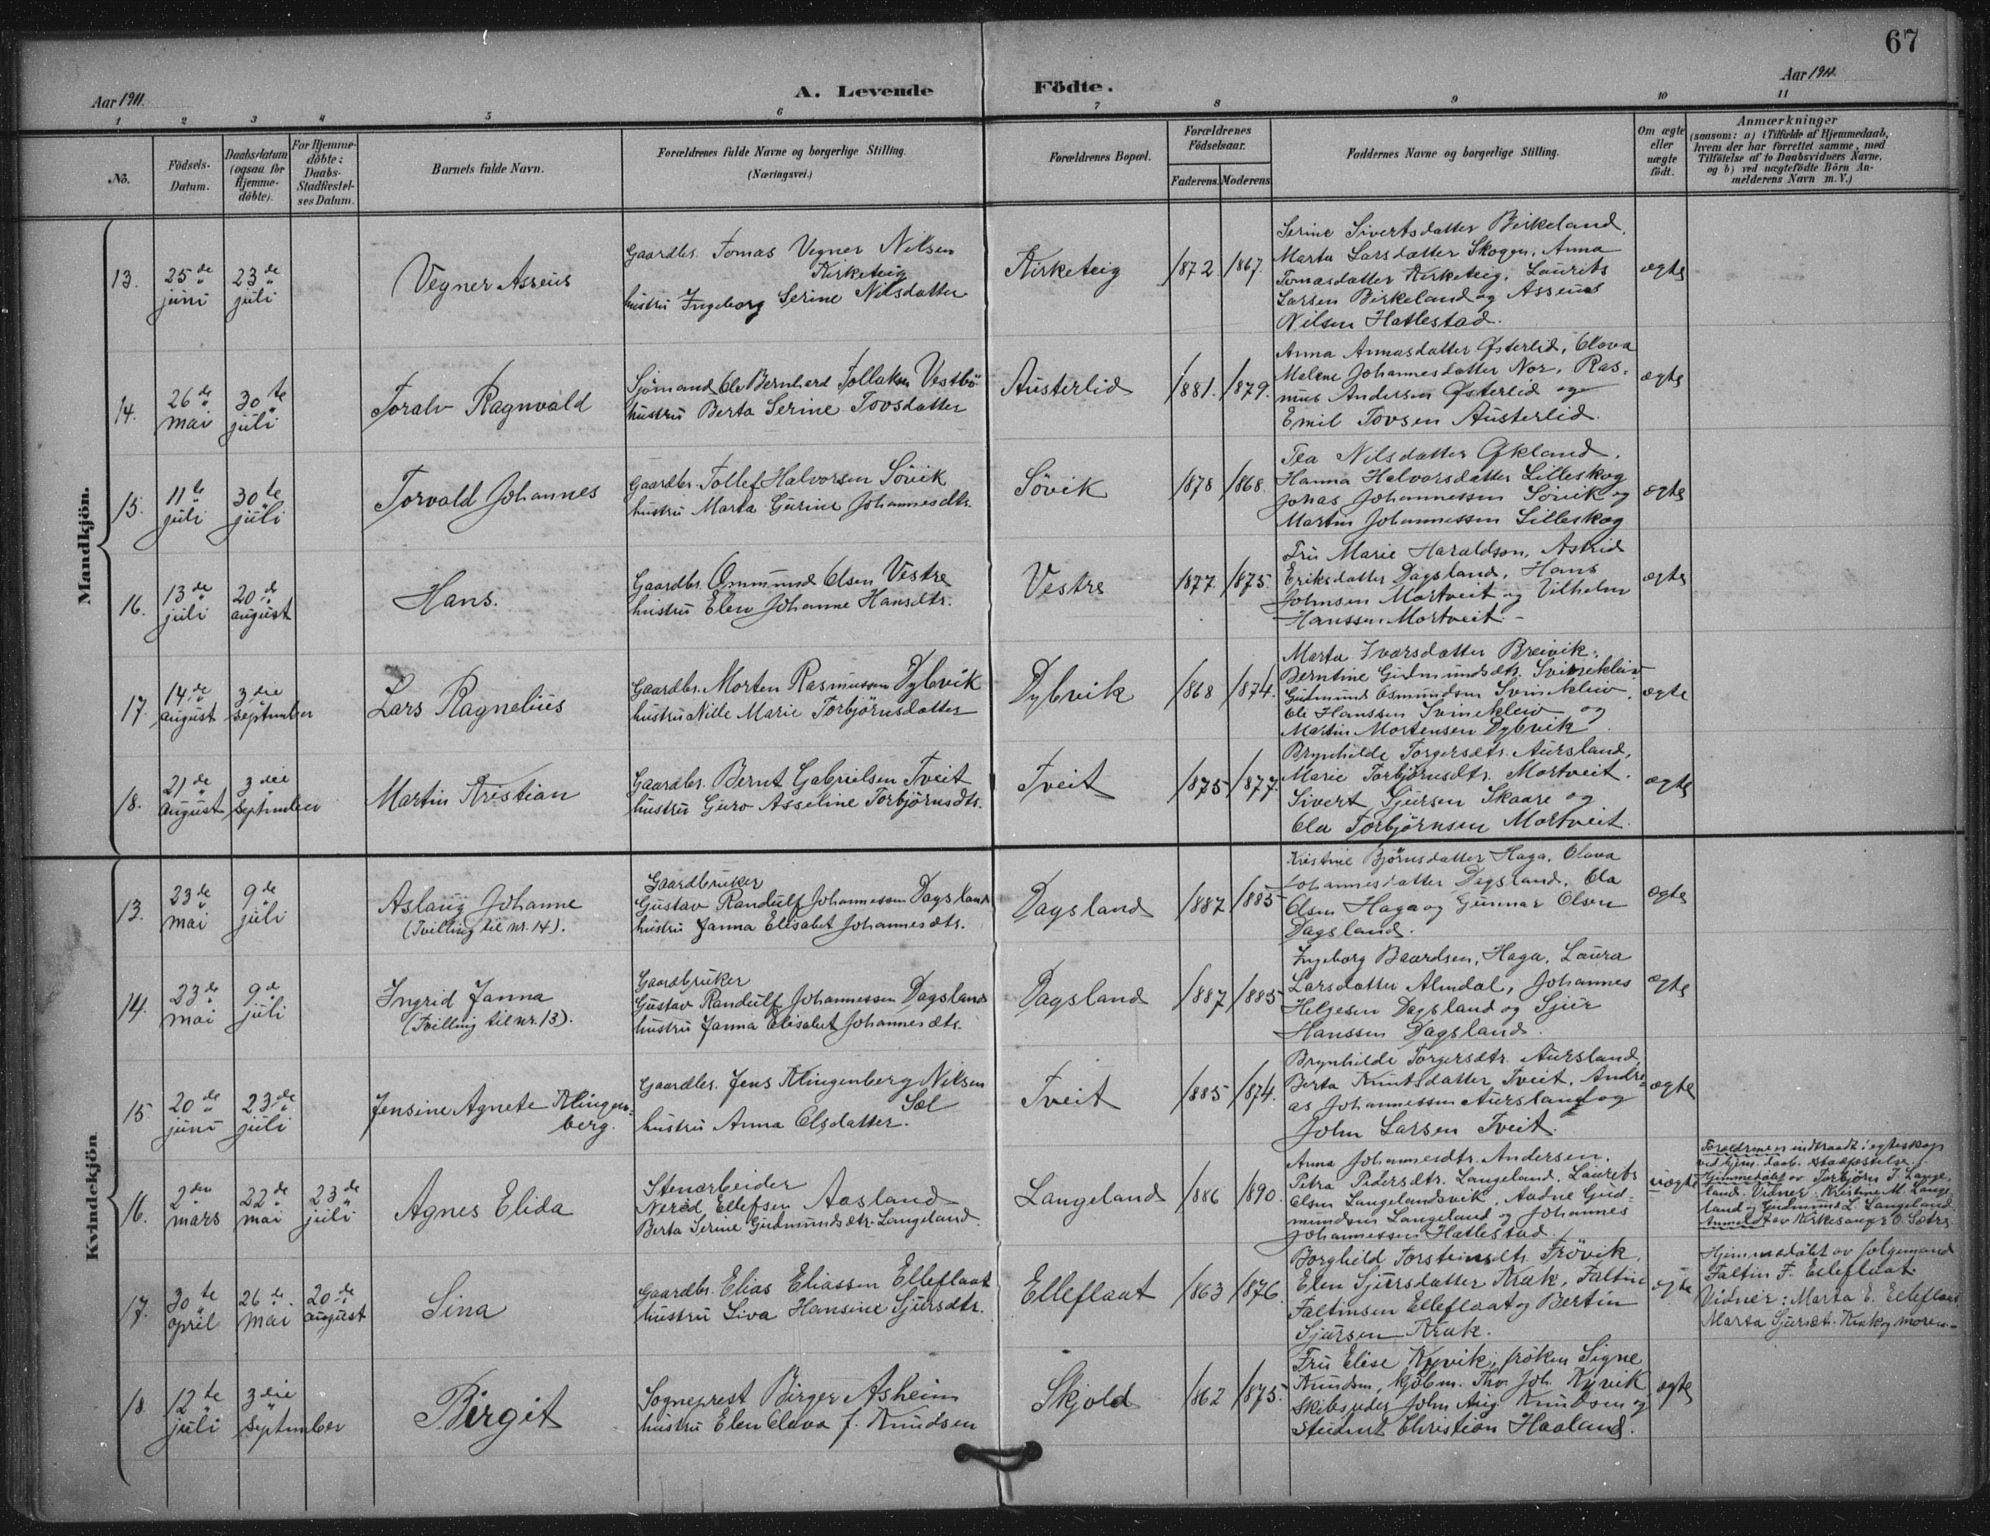 67
Aar 1911.
A. Levende Födte.
Aar 1911.
1 2 3 4 5 6 7 8 9 10 11
No.
Födsels-Datum.
Daabsdatum (ogsaa for Hjemme-döbte).
For Hjemme-döbte: Daabs-Stadfæstel-ses Datum.
Barnets fulde Navn.
Forældrenes fulde Navne og borgerlige Stilling.
(Næringsvei.)
Forældrenes Bopæl.
Forældrenes Födselsaar.
Faderens. Moderens.
Faddernes Navne og borgerlige Stilling.
Om ægte eller uægte födt.
Anmærkninger
(saasom: a) i Tilfælde af Hjemmedaab, hvem der har forrettet samme, med Tilföielse af to Daabsvidners Navne, og b) ved uægtefödte Börn Anmelderens Navn m. V.)
Mandkjön.
13. 25de juni 23de juli
Vegner Asseus
Gaardbr. Tomas Vegner Nilsen Kirketeig
hustru Ingeborg Serine Nilsdatter
Kirketeig 1872. 1867.
Serine Sivertsdatter Birkeland,
Marta Larsdatter Skogen, Anna
Tomasdatter Kirketeig, Laurits
Larsen Birkeland og Asseus
Nilsen Hatlestad.
ægte
14. 26de mai 30te juli
Toralv Ragnvald
Sjømand Ole Bernhard Tollaksen Vestbø
hustru Berta Serine Tovsdatter
Austerlid 1881. 1879.
Anna Annasdatter Østerlid, Olava
Malene Johannesdatter Nor, Ras-
mus Andersen Østerlid og
Emil Tovsen Austerlid.
ægte
15. 11te juli 30te juli
Torvald Johannes
Gaardbr. Tollef Halvorsen Søvik
hustru Marta Gurine Johannesdtr.
Søvik 1878 1868.
Tea Nilsdatter Økland.
Hanna Halvorsdatter Lilleskog
Jonas Johannessen Søvik og
Martin Johannessen Lilleskog
ægte
16. 13de juli 20de august
Hans.
Gaardbr. Ommund Olsen Vestre
hustru Elen Johanne Hansdtr.
Vestre 1877. 1875.
Fru Marie Haraldson, Astrid
Eriksdatter Dagsland, Hans
Johnsen Mortveit og Vilhelm
Hanssen Mortveit.
ægte
17 14de august 3die september
Lars Ragnelius
Gaardbr. Morten Rasmussen Dybvik
hustru Nille Marie Torbjørnsdatter
Dybvik 1868 1874.
Marta Ivarsdatter Breivik.
Berntine Gudmundsdtr. Svinekleiv
Gudmund Osmundsen Svinekleiv,
Ole Hanssen Svinekleiv og
Martin Mortensen Dybvik
ægte
18. 21de august 3die september
Martin Kristian
Gaardbr. Bernt Gabrielsen Tveit
hustru Guro Asseline Torbjørnsdtr.
Tveit 1875 1877.
Brynhilde Torgersdtr. Aursland,
Marie Torbjørnsdtr. Mortveit.
Sivert Sjursen Skaare og
Ola Torbjørnsen Mortveit.
ægte
Kvindekjön
13. 23de mai 9de juli
Aslaug Johanne
(Tvilling til nr. 14).
Gaardbruker
Gustav Randulf Johannessen Dagsland
hustru Janna Elisabet Johannesdtr.
Dagsland 1887. 1885
Kristine Bjørnsdatter Haga, Olava
Johannesdatter Dagsland, Ola
Olsen Haga og Gunnar Olsen
Dagsland.
ægte
14. 23de mai 9de juli
Ingrid Janna
(Tvilling til nr. 13).
Gaardbruker
Gustav Randulf Johannessen Dagsland
hustru Janna Elisabet Johannesdtr.
Dagsland 1887 1885
Ingeborg Baardsen, Haga, Laura
Larsdatter Almdal, Johannes
Helgesen Dagsland og Sjur
Hanssen Dagsland.
ægte
15. 20de juni 23de juli
Jensine Agnete Klingen-
berg.
Gaardbr. Jens Klingenberg Nilsen Sæl
hustru Anna Olsdatter.
Tveit 1885 1874.
Brynhilde Torgersdtr. Aursland,
Berta Knutsdatter Tveit, Andre-
as Johannessen Aursland og
John Larsen Tveit.
ægte
16. 2den mars 22de mai 23de juli
Agnes Elida
Stenarbeider
Nerid Ellefsen Aasland
Berta Serine Gudmundsdtr. Langeland.
Langeland 1886 1890.
Anna Johannesdtr. Andersen.
Petra Pedersdtr. Langeland, Laurits
Olsen Langelandsvik, Aadne Gud-
mundsen Langeland og Johannes
Johannessen Hatlestad.
uægte
Forældrene er indtraadt i egteskap
ved hjem. daab. stadfæstelse.
Hjemmedøbt av Torbjørn J. Lange-
land. Vidner: Kristine M. Lange-
land og Gudmund L. Langeland.
Anmeldt av Kirkesanger O. Sætre.
17. 30te april 26de mai 20de august
Sina
Gaardbr. Elias Eliassen Elleflaat
hustru Siva Hansine Sjursdtr.
Elleflaat 1863 1876.
Borghild Torsteinsdtr. Frövik,
Elen Sjursdatter Krak, Faltin
Faltinsen Elleflaat og Bertin
Sjursen Krak.
ægte
Hjemmedøbt av følgemand
Faltin F. Elleflaat.
Vidner: Marta E. Elleflaat,
Marta Sjursdt. Krak og moren.
18 12te juli 3die september
Birgit
Sogneprest Birger Asheim
hustru Elen Olava f. Knudsen
Skjold 1862 1875.
Fru Elise Kyvik, frøken Signe
Knudsen, kjøbm. Thv. Joh. Kyvik
Skibsreder John Aug. Knudsen og
student Christian Haaland.
ægte